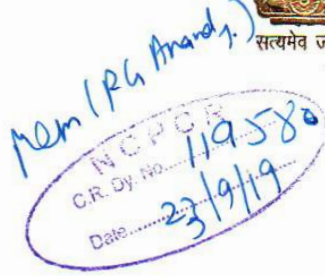 सत्यमेव ज
Mem (RG Anand J.)
NCPCR
C.R. Dy. No. 119580
Date 23/9/19